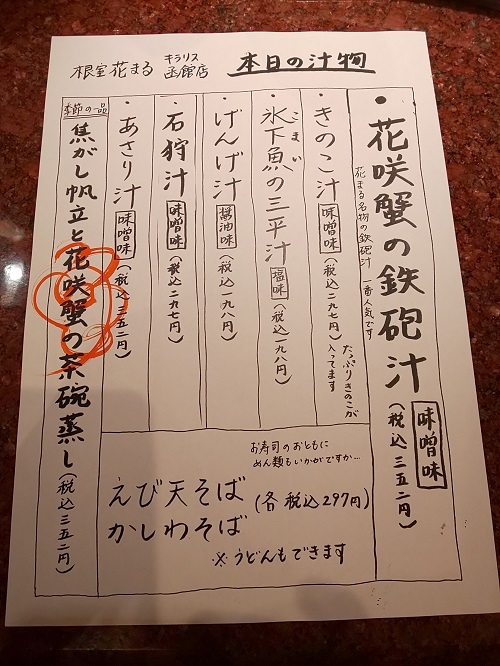 根室花まる キラリス函館店
本日の汁物
・花咲蟹の鉄砲汁 味噌味 (税込三五二円)
花まる名物の鉄砲汁 一番人気です
・きのこ汁 味噌味 (税込二九七円)
たっぷりきのこが
入ってます
・氷下魚の三平汁 塩味 (税込一九八円)
こまい
・げんげ汁 醤油味 (税込一九八円)
・石狩汁 味噌味 (税込二九七円)
・あさり汁 味噌味 (税込三五二円)
季節の一品
焦がし帆立と花咲蟹の茶碗蒸し (税込三五二円)
お寿司のおともに
めん類もいかがですか…
えび天そば
かしわそば
(各 税込297円)
※うどんもできます